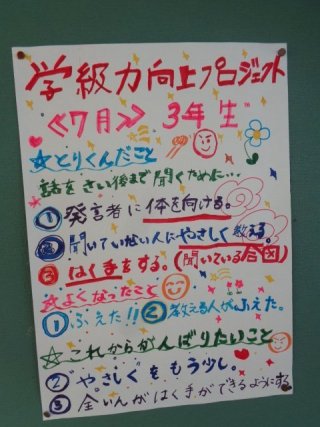 学級力向上プロジェクト
≪7月≫ 3年生
☆とりくんだこと
話をさい後まで聞くために…
① 発言者に体を向ける。
② 聞いていない人にやさしく教える。
③ はく手をする。(聞いている合図)
☆よくなったこと
① ふえた!! ② 教える人がふえた。
☆これからがんばりたいこと
② やさしくをもう少し。
③ 全いんがはく手ができるようにする